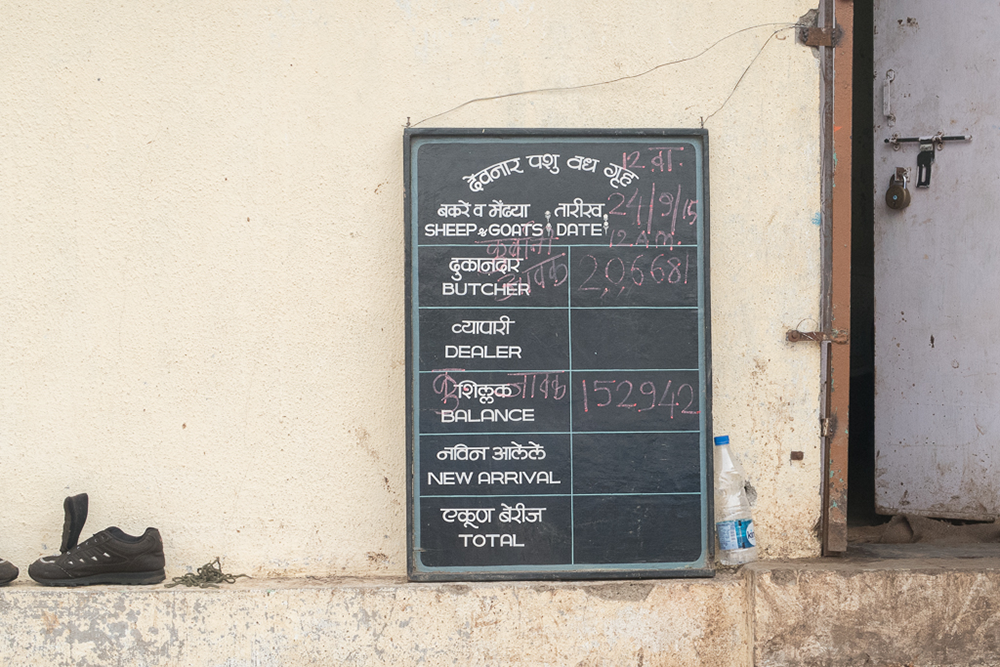 देवनार पशु वध गृह
12 वा.
बकरे व मेंढ्या : तारीख :
24/9/15
SHEEP & GOATS : DATE :
12 A.M.
दुकानदार
आवक
206681
BUTCHER
व्यापारी
DEALER
शिल्लक
जावक
152942
BALANCE
नविन आलेले
NEW ARRIVAL
एकूण बेरीज
TOTAL